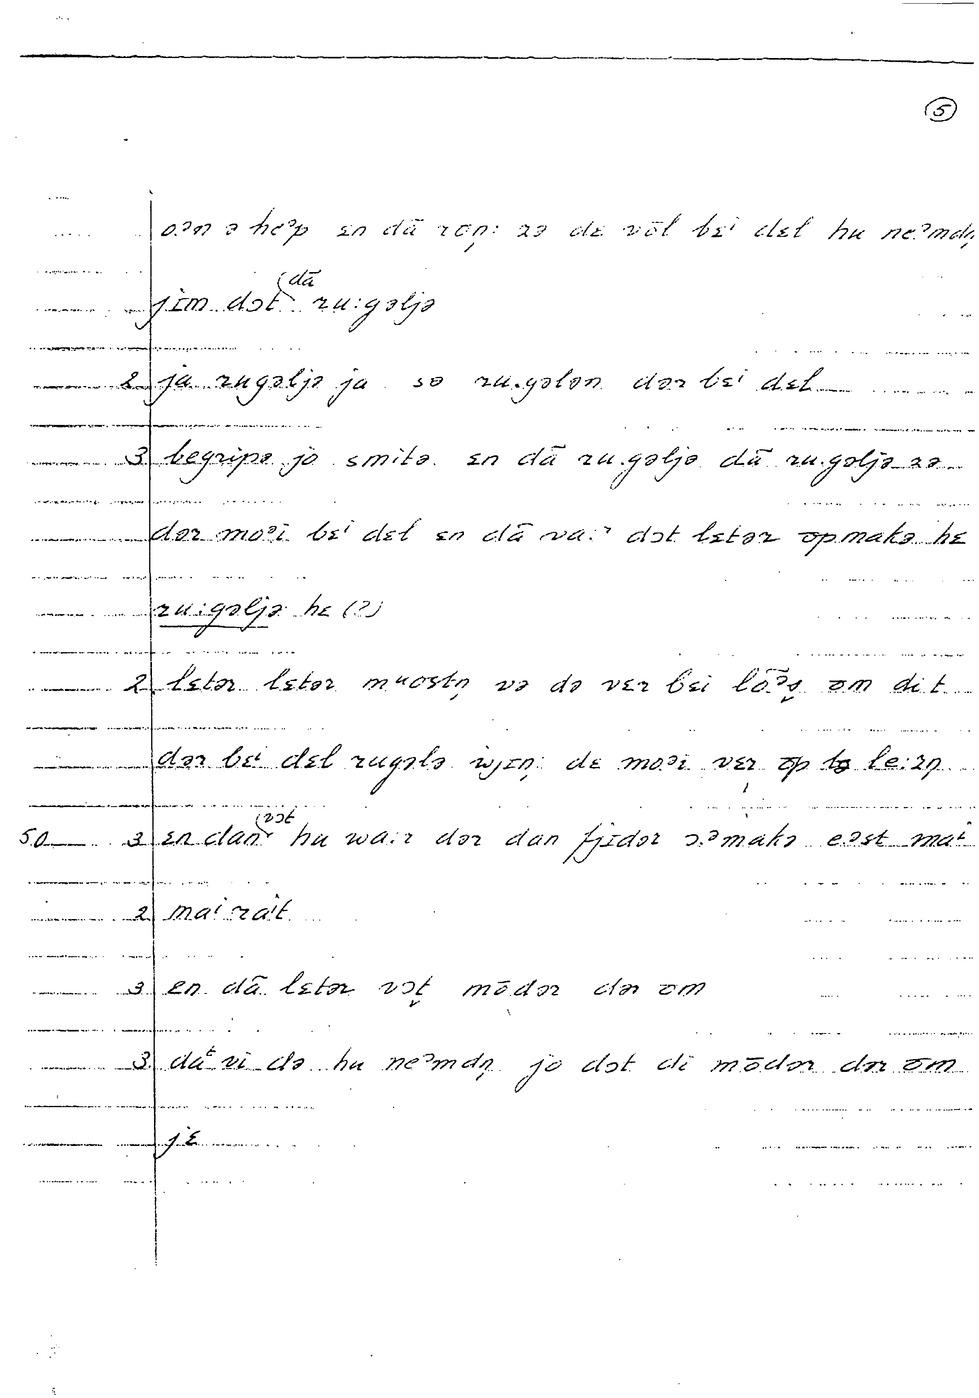 5
oən ə heᵊp ɛn dā rɑņ: zə dɛ vōl bɛⁱ dɛl hu neᵊmdņ
(dā
jɪm dɔt ru:gəljə
2 ja rugəljə ja sə ru.gələn dər bɛⁱ dɛl
3 begripə jo smitə. ɛn dā ru.gəljə dā ru.gəljə zə
dər moᵊi bɛⁱ dɛl ɛn dā va:ʳ dɔt lɛtər opmakə hɛ
ru:gəljə hɛ (?)
2 lɛtər lɛtər muɑstņ və də vɛr bɛi om dit
dər bɛⁱ dɛl rugələ dɛ moᵊi vɛr op tə le:rn
(vɔt
50 3 ɛn dan hu wa:r dər dan fjɪdər ɔ:ᵊmakə eəst maⁱ
2 maⁱ raⁱt
3 ɛn dā lɛtər vɔt mōdər dər om
3. daᵗ vi də hu neᵊmdņ jo dɔt di mōdər dər om
jɛ